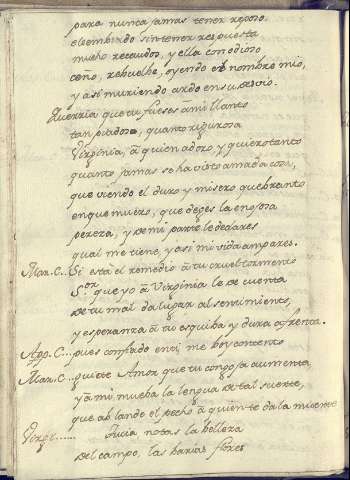 para nunca jamas tener reposo.
ele embiado sin tener respuesta
mucho recaudos, y ella con odioso
ceño, rebuelbe, oyendo el nombre mio,
y asi muriendo ardo en su desvio.
Querria que tu fueses a mi llanto
tan piadosa, quanto rigurosa
Virginia, a quien adoro y quiero tanto
quanto jamas se ha visto amada cosa,
que viendo el duro y misero quebranto
en que muero, que deges la enojosa
pereza, y de mi parte le declares
qual me tiene, y asi mi vida ampares.
Mar. C... Si está el remedio a tu cruel tormento
Sor. que yo a Virginia le de cuenta
de tu mal da lugar al sentimiento,
y esperanza a tu esquiba y dura afrenta.
Apo. C... pues confiado en ti, me boy contento
Mar. C... quite Amor que tu congoja aumenta,
y a mi mueba la lengua de tal suerte,
que ablande el pecho a quien te da la muerte
Virgi...... Iulia notas la belleza
del campo, las barias flores